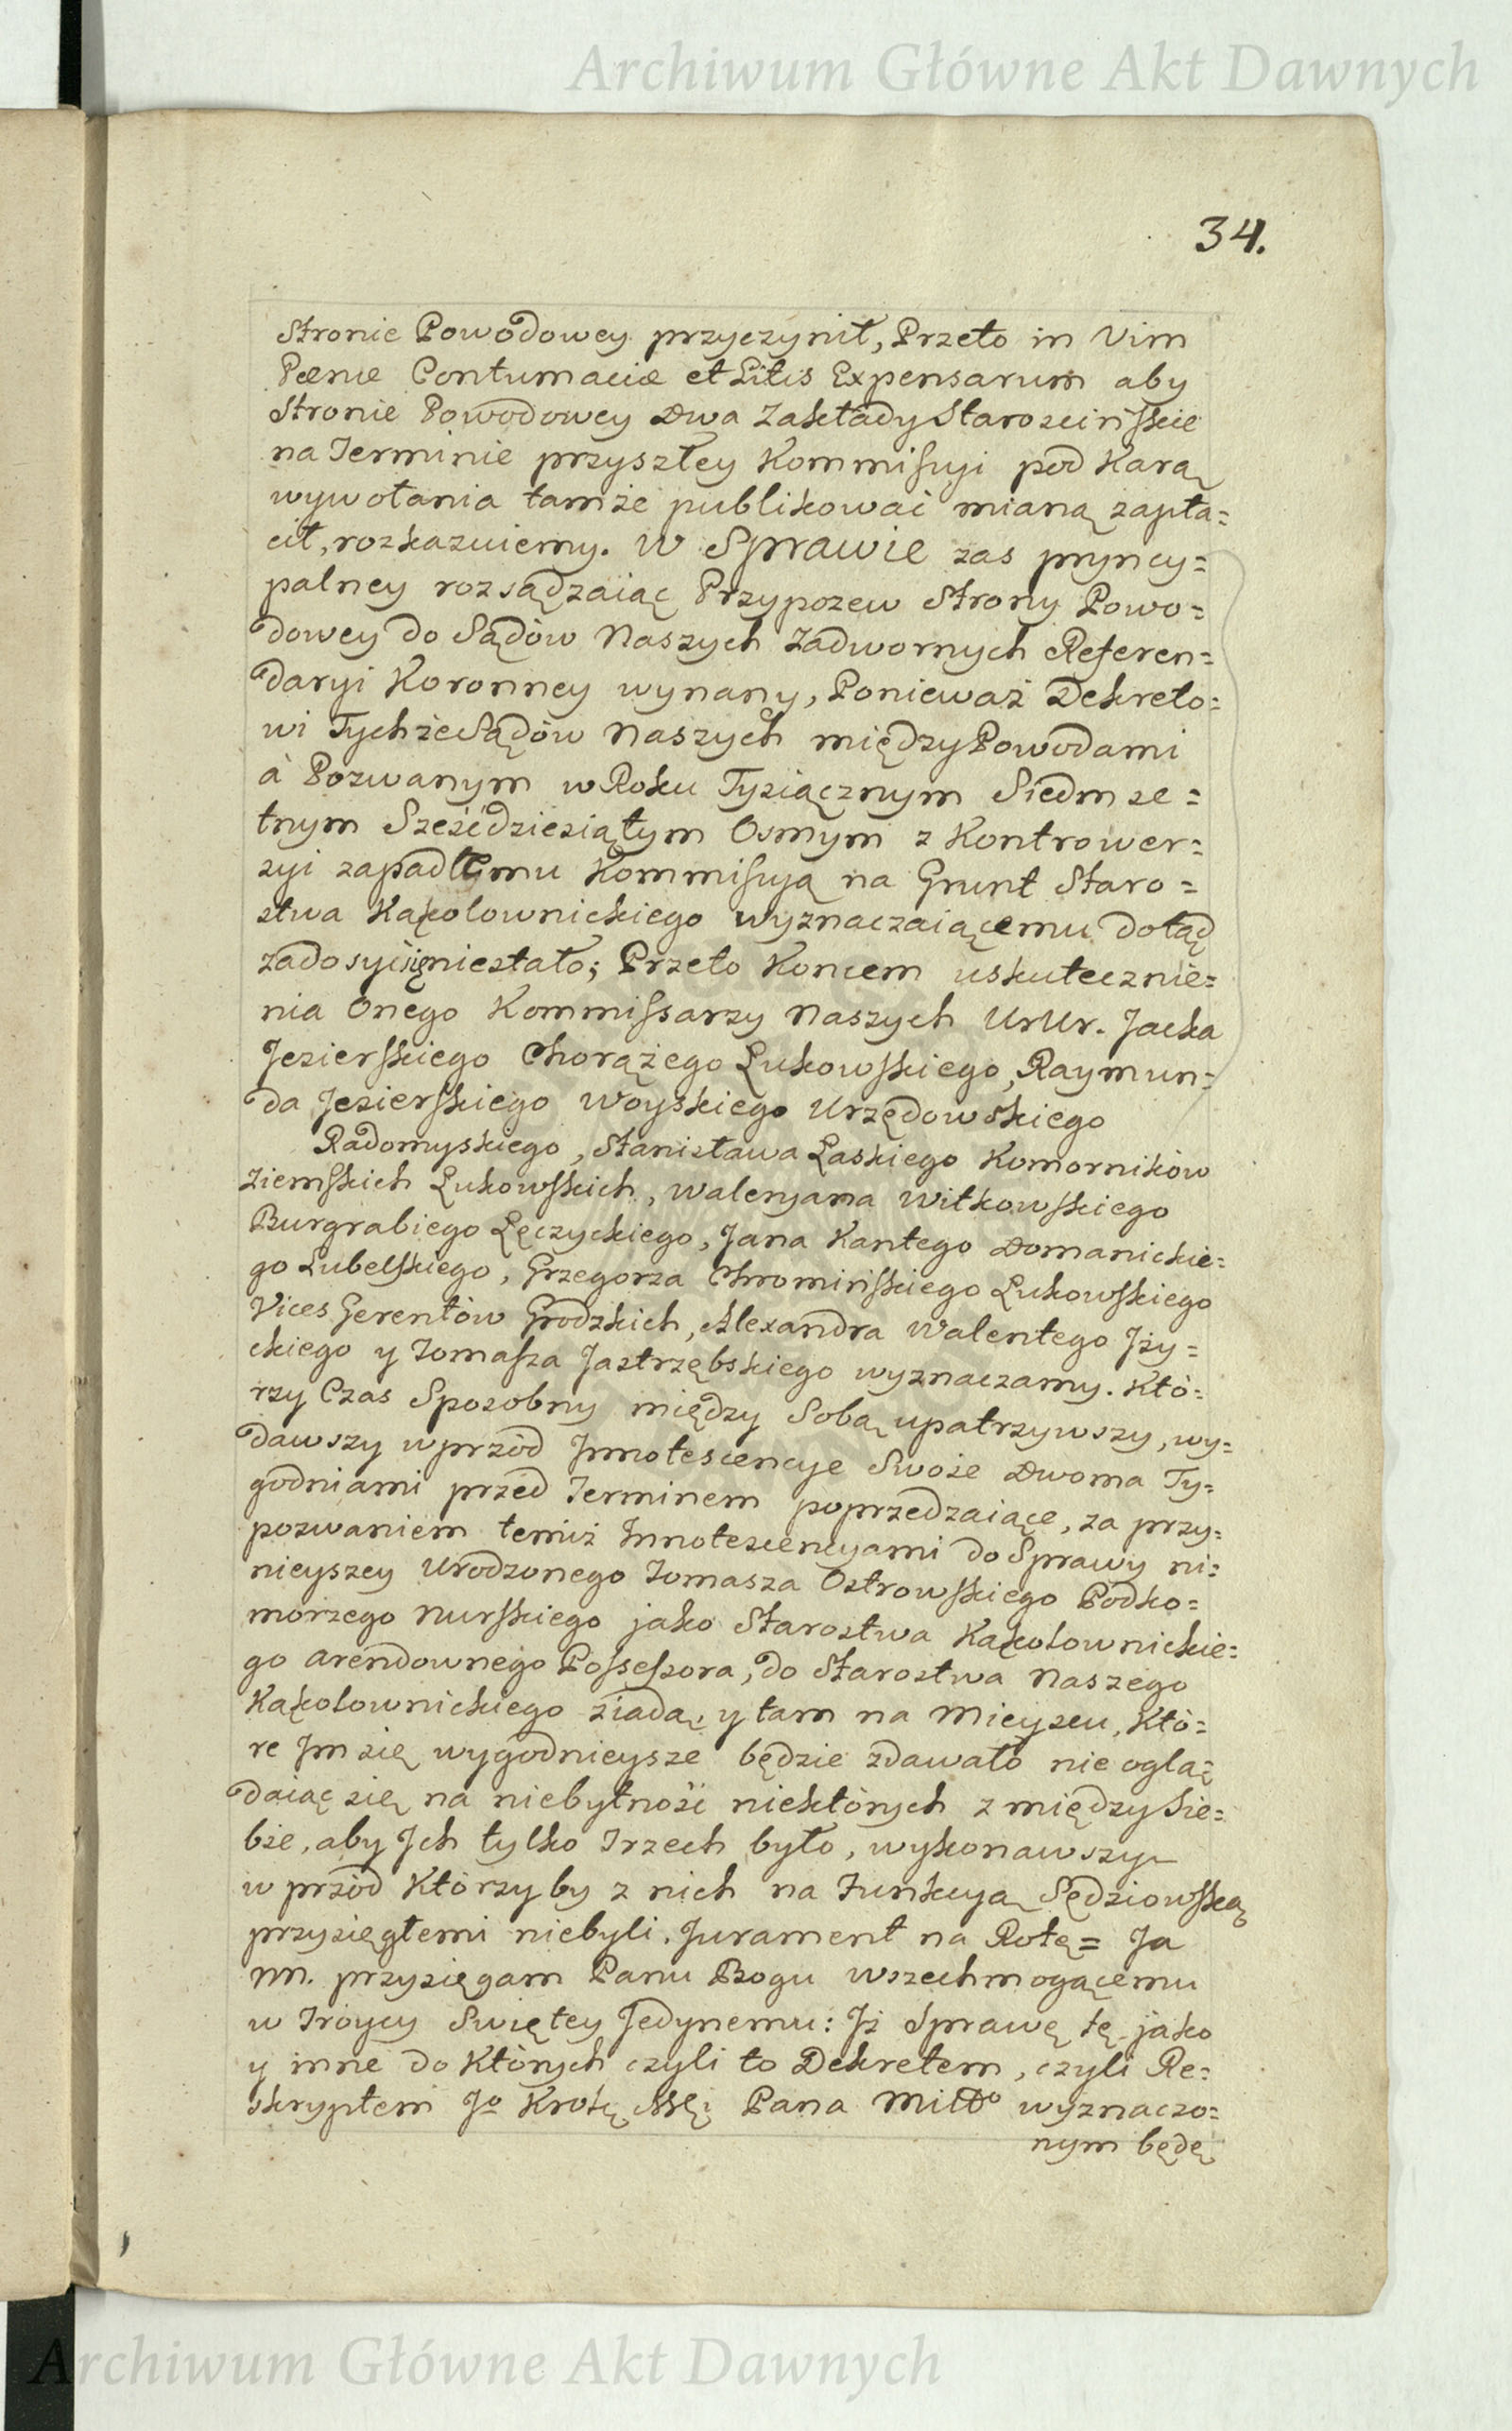 Archiwum Główne Akt Dawnych
34.
Stronie Powodowey przyczynił, Przeto in Vim
Pœnæ Contumaciæ et Litis Expensarum aby
Stronie Powodowey Dwa Zakłady Starościńskie
na Terminie przyszłey Kommissyi pod Karą
wywołania tamże publikować mianą zapła=
cił, rozkazuiemy. W Sprawie zas pryncy=
palney rozsądzaiąc Przypozew Strony Powo=
dowey do Sądów Naszych Zadwornych Referen=
daryi Koronney wynany, Ponieważ Dekreto=
wi Tychże Sądów Naszych między Powodami
à Pozwanym w Roku Tysiącznym Siedmse=
tnym Sześćdziesiątym Osmym z Kontrower=
syi zapadłemu Kommissyą na Grunt Staro=
stwa Kąkolownickiego wyznaczaiącemu dotąd
zadosyić się niestało; Przeto Koncem uskutecznie=
nia Onego Kommissarzy Naszych UrUr. Jacka
Jezierskiego Chorążego Łukowskiego, Raymun=
da Jezierskiego Woyskiego Urzędowskiego
Radomyskiego, Stanisława Łaskiego Komorników
Ziemskich Łukowskich, Waleryana Witkowskiego
Burgrabiego Łęczyckiego, Jana Kantego Domanickie=
go Lubelskiego, Grzegorza Chromińskiego Łukowskiego
Vices Gerentów Grodzkich, Alexandra Walentego Jży=
ckiego y Tomasza Jastrzębskiego wyznaczamy. Któ=
rzy Czas Sposobny między Sobą upatrzywszy, wy=
dawszy wprzód Jnnotescencye Swoie Dwoma Ty=
godniami przed Terminem poprzedzaiące, za przy=
pozwaniem temiż Jnnotescencyami do Sprawy ni=
nieyszey Urodzonego Tomasza Ostrowskiego Podko=
morzego Nurskiego jako Starostwa Kąkolownickie=
go arendownego Possessora, do Starostwa Naszego
Kąkolownickiego ziadą, y tam na Mieyscu, Któ=
re Jm się wygodnieysze będzie zdawało nie oglą=
daiąc się na niebytność niektórych z między Sie=
bie, aby Jch tylko Trzech było, wykonawszy
w przód Którzyby z nich na Funkcyą Sędziowską
przysięgłemi niebyli, Jurament na Rotę= Ja
NN. przysięgam Panu Bogu wszechmogącemu
w Tróycy Swiętey Jedynemu: Jż Sprawę tę jako
y inne do Których czyli to Dekretem, czyli Re=
skryptem Jo Krolę Mśći Pana Miłło wyznaczo=
nym będę
Archiwum Główne Akt Dawnych